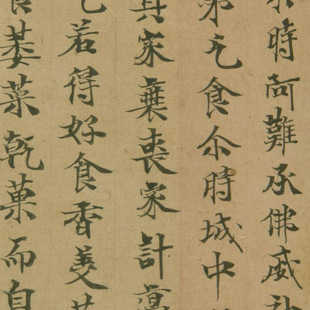 時阿難承佛威神
苐乞食尒時城中
其家喪家計
乞若得好食香美
食萎菜乾菓而自